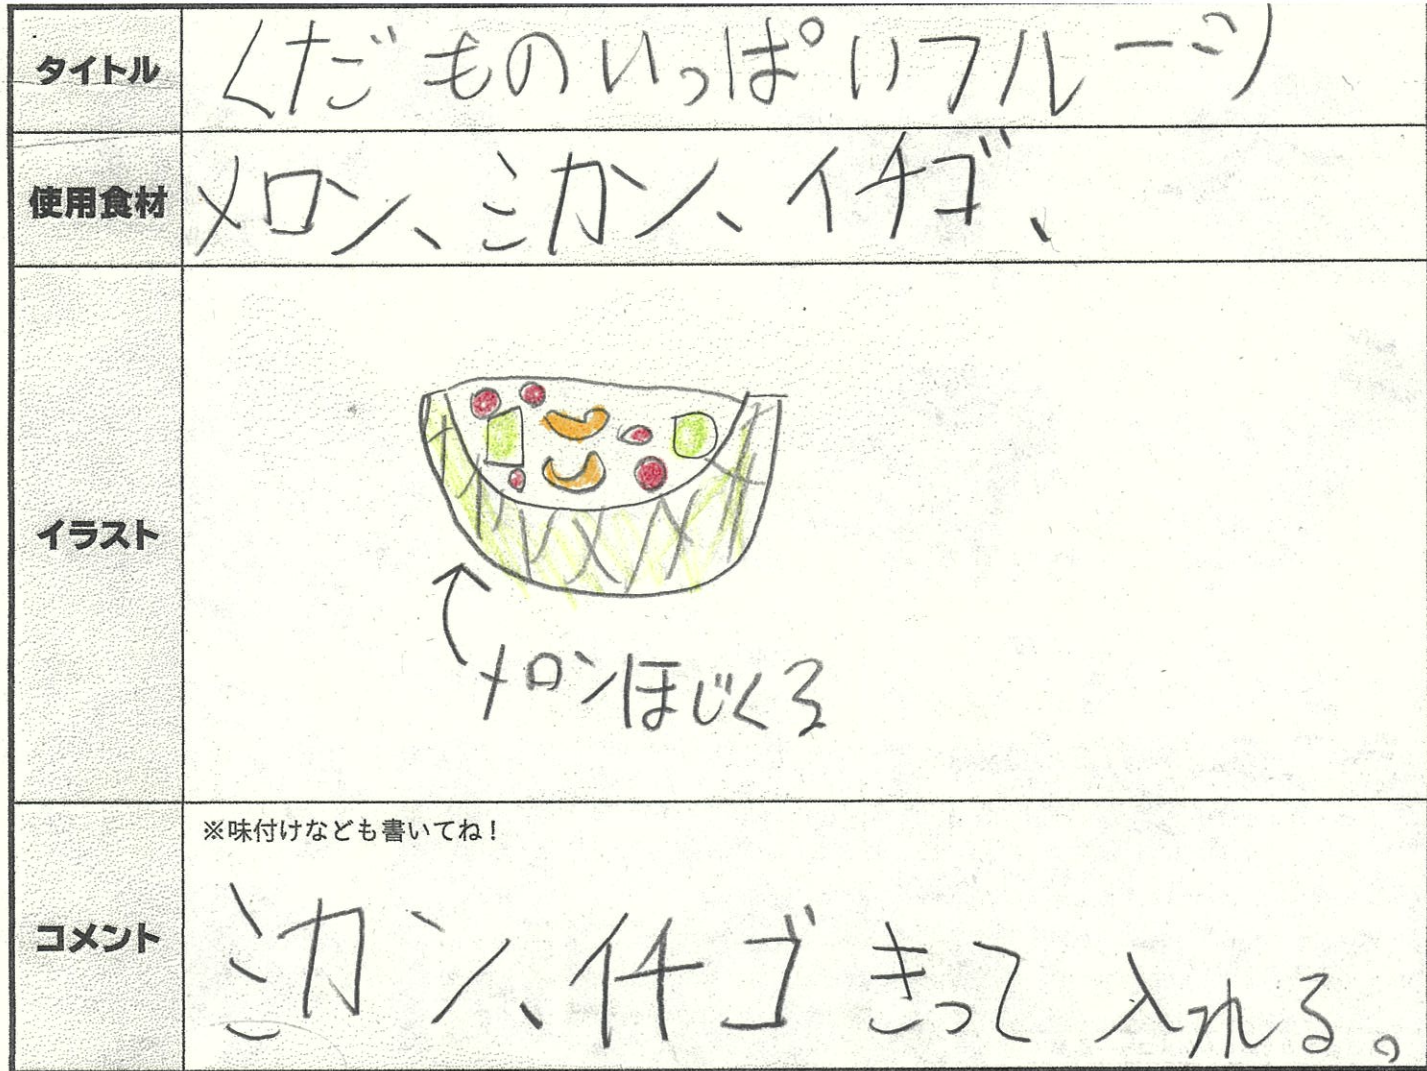 タイトル
くだものいっぱいフルーツ
使用食材
メロン、ミカン、イチゴ、
イラスト
メロンほじくる
コメント
※味付けなども書いてね！
ミカン、イチゴきって入れる。